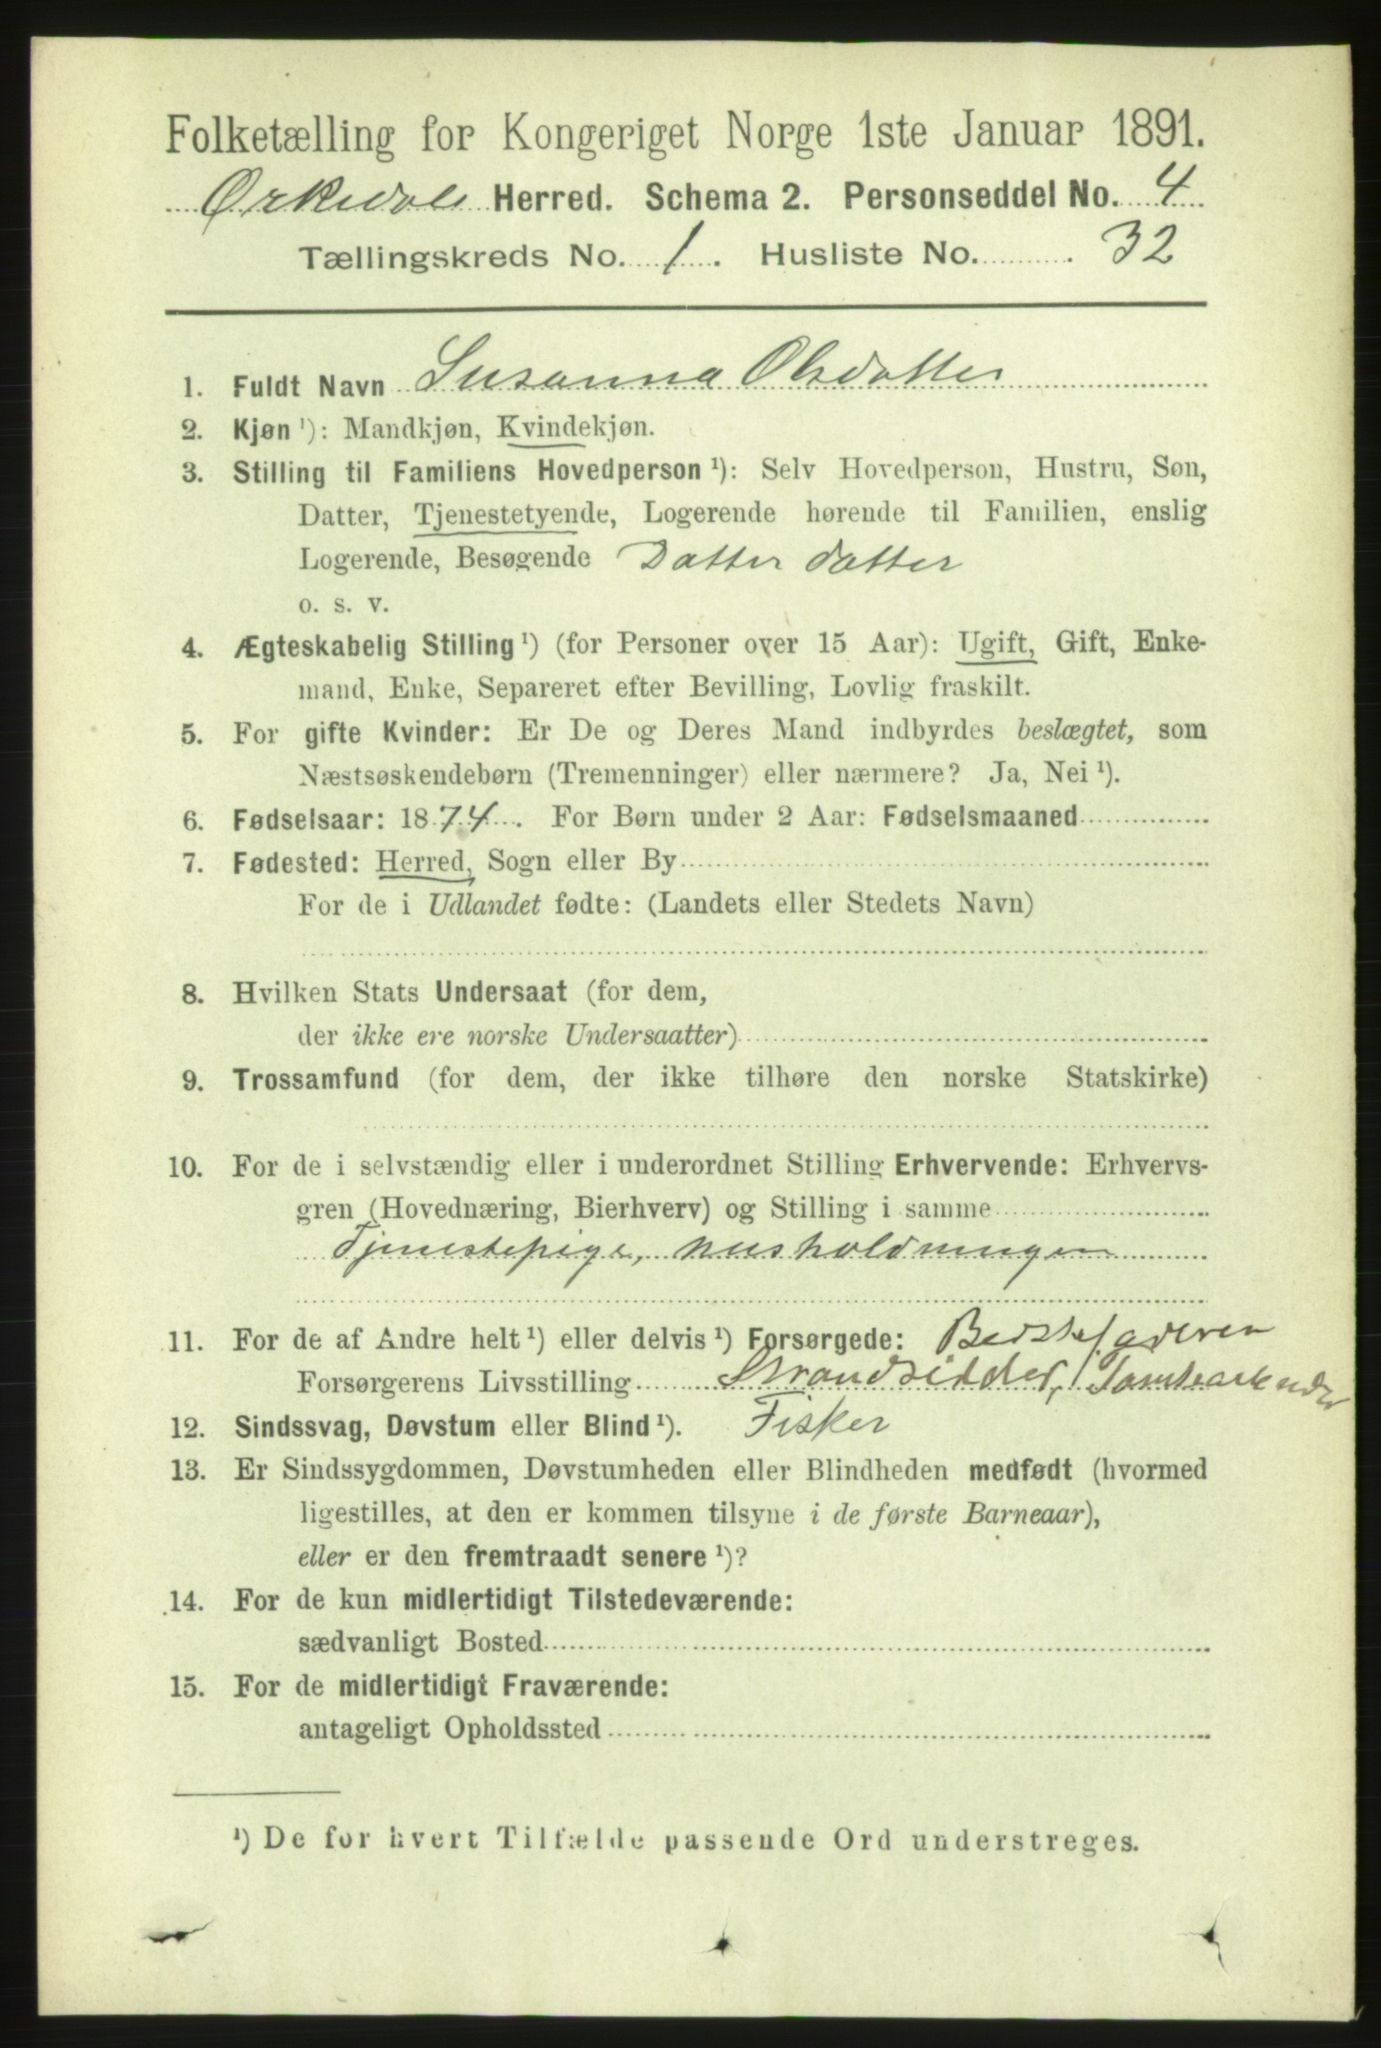 Folketælling for Kongeriget Norge 1ste Januar 1891.
Ørkedals Herred. Schema 2. Personseddel No. 4
Tællingskreds No. 1. Husliste No. 32
1. Fuldt Navn Susanna Olsdatter
2. Kjøn ¹): Mandkjøn, Kvindekjøn.
3. Stilling til Familiens Hovedperson ¹): Selv Hovedperson, Hustru, Søn,
Datter, Tjenestetyende, Logerende hørende til Familien, enslig
Logerende, Besøgende Datter datter
o. s. v.
4. Ægteskabelig Stilling ¹) (for Personer over 15 Aar): Ugift, Gift, Enke-
mand, Enke, Separeret efter Bevilling, Lovlig fraskilt.
5. For gifte Kvinder: Er De og Deres Mand indbyrdes beslægtet, som
Næstsøskendebørn (Tremenninger) eller nærmere? Ja, Nei ¹).
6. Fødselsaar: 1874. For Børn under 2 Aar: Fødselsmaaned
7. Fødested: Herred, Sogn eller By
For de i Udlandet fødte: (Landets eller Stedets Navn)
8. Hvilken Stats Undersaat (for dem,
der ikke ere norske Undersaatter)
9. Trossamfund (for dem, der ikke tilhøre den norske Statskirke)
10. For de i selvstændig eller i underordnet Stilling Erhvervende: Erhvervs-
gren (Hovednæring, Bierhverv) og Stilling i samme
Tjenestepige, husholdningen
11. For de af Andre helt ¹) eller delvis ¹) Forsørgede: Bedstefaderen
Forsørgerens Livsstilling Strandsidder, Tomtearbeider
12. Sindssvag, Døvstum eller Blind ¹). Fisker
13. Er Sindssygdommen, Døvstumheden eller Blindheden medfødt (hvormed
ligestilles, at den er kommen tilsyne i de første Barneaar),
eller er den fremtraadt senere ¹)?
14. For de kun midlertidigt Tilstedeværende:
sædvanligt Bosted
15. For de midlertidigt Fraværende:
antageligt Opholdssted
¹) De for hvert Tilfælde passende Ord understreges.